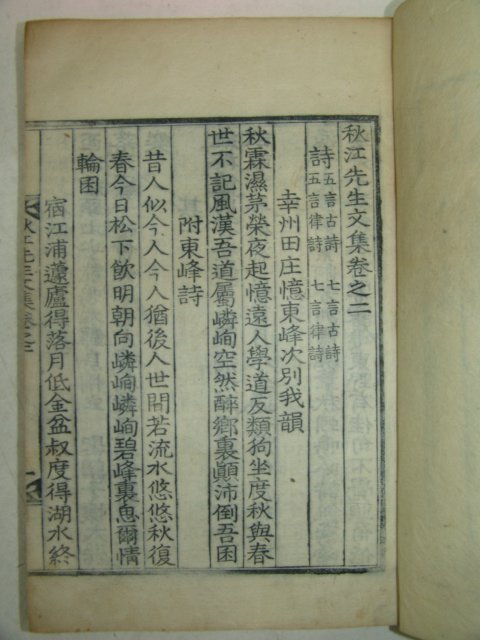 秋江先生文集卷之二
詩 五言古詩 七言古詩
五言律詩 七言律詩
幸州田庄憶東峰次別我韻
秋霖濕茅榮夜起憶遠人學道反類狗坐度秋與春
世不記風漢吾道屬嶙峋空然醉鄉裏顚沛倒吾囷
附東峰詩
昔人似今人今人猶後人世間若流水悠悠秋復
春今日松下飮明朝向嶙峋嶙峋碧峰裏思爾情
輪囷
宿江浦蘆廬得落月低金盆叔度得湖水終
秋江先生文集卷之二